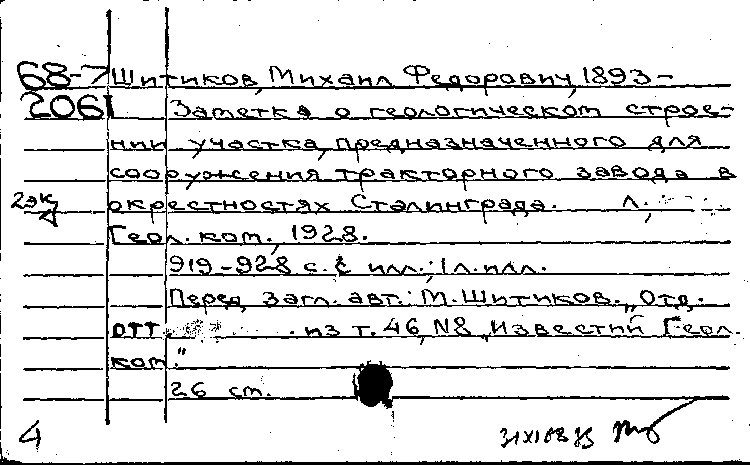 68-7 Шитиков, Михаил Федорович, 1893-
2061 Заметка о геологическом строе-
нии участка, предназначенного для
сооружения тракторного завода в
2эк окрестностях Сталинграда. Л.,
Геол. ком., 1928.
919-928 с. с илл.; 1 л. илл.
Перед загл. авт.: М. Шитиков. „Отд.
отт. из т. 46, N8 „Известий Геол.
ком."
26 см.
4